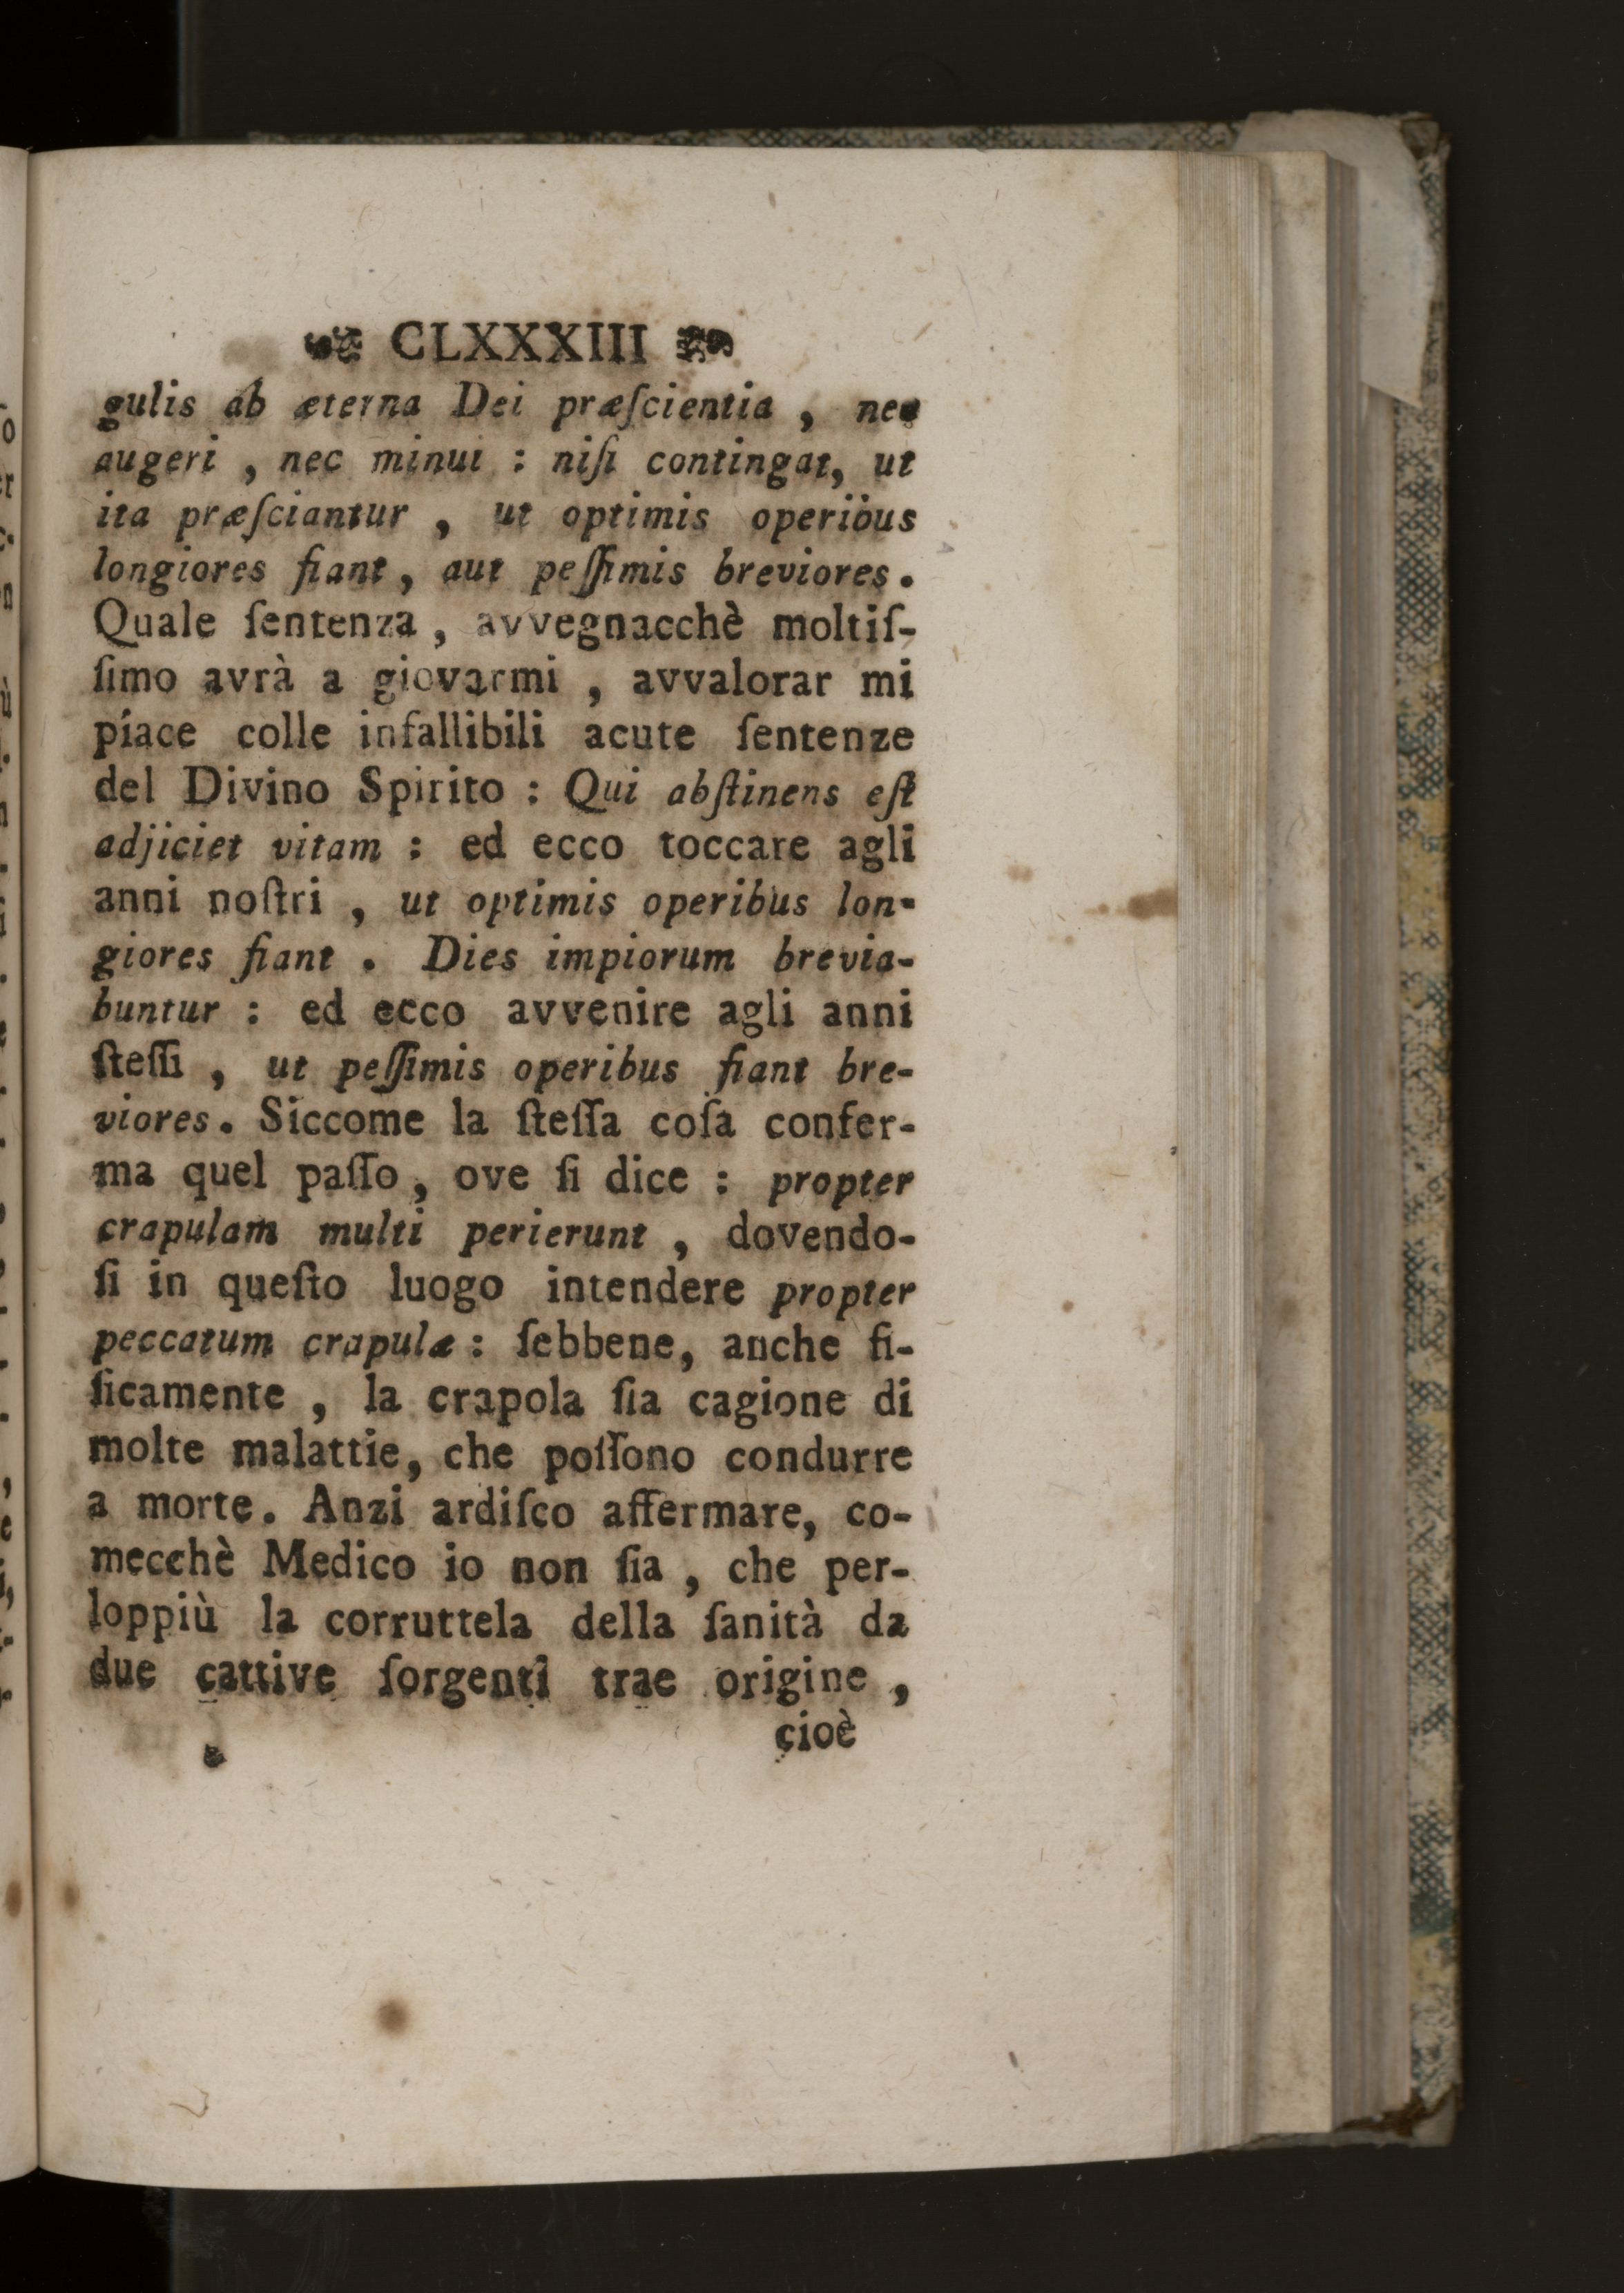 CLXXXIII
gulis ab æterna Dei præſcientia , nec
augeri , nec minui : niſi contingat, ut
ita præſciantur , ut optimis operibus
longiores fiant , aut peſſimis breviores .
Quale ſentenza , avvegnacchè moltiſ-
ſimo avrà a giovarmi , avvalorar mi
piace colle infallibili acute ſentenze
del Divino Spirito : Qui abſtinens eſt
adjiciet vitam : ed ecco toccare agli
anni noſtri , ut optimis operibus lon-
giores fiant . Dies impiorum brevia-
buntur : ed ecco avvenire agli anni
ſteſſi , ut peſſimis operibus fiant bre-
viores . Siccome la ſteſſa coſa confer-
ma quel paſſo , ove ſi dice : propter
crapulam multi perierunt , dovendo-
ſi in queſto luogo intendere propter
peccatum crapulæ : ſebbene, anche fi-
ſicamente , la crapola ſia cagione di
molte malattie, che poſſono condurre
a morte . Anzi ardiſco affermare, co-
mecchè Medico io non ſia , che per-
loppiù la corruttela della ſanità da
due cattive ſorgenti trae origine ,
cioè